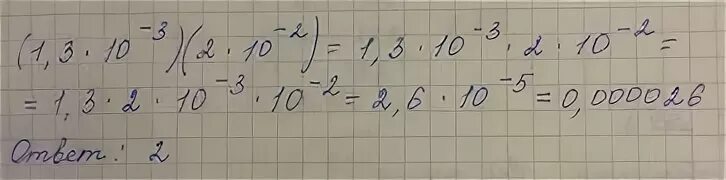 (1,3 · 10⁻³)(2 · 10⁻²) = 1,3 · 10⁻³ · 2 · 10⁻² =
= 1,3 · 2 · 10⁻³ · 10⁻² = 2,6 · 10⁻⁵ = 0,000026
Ответ: 2